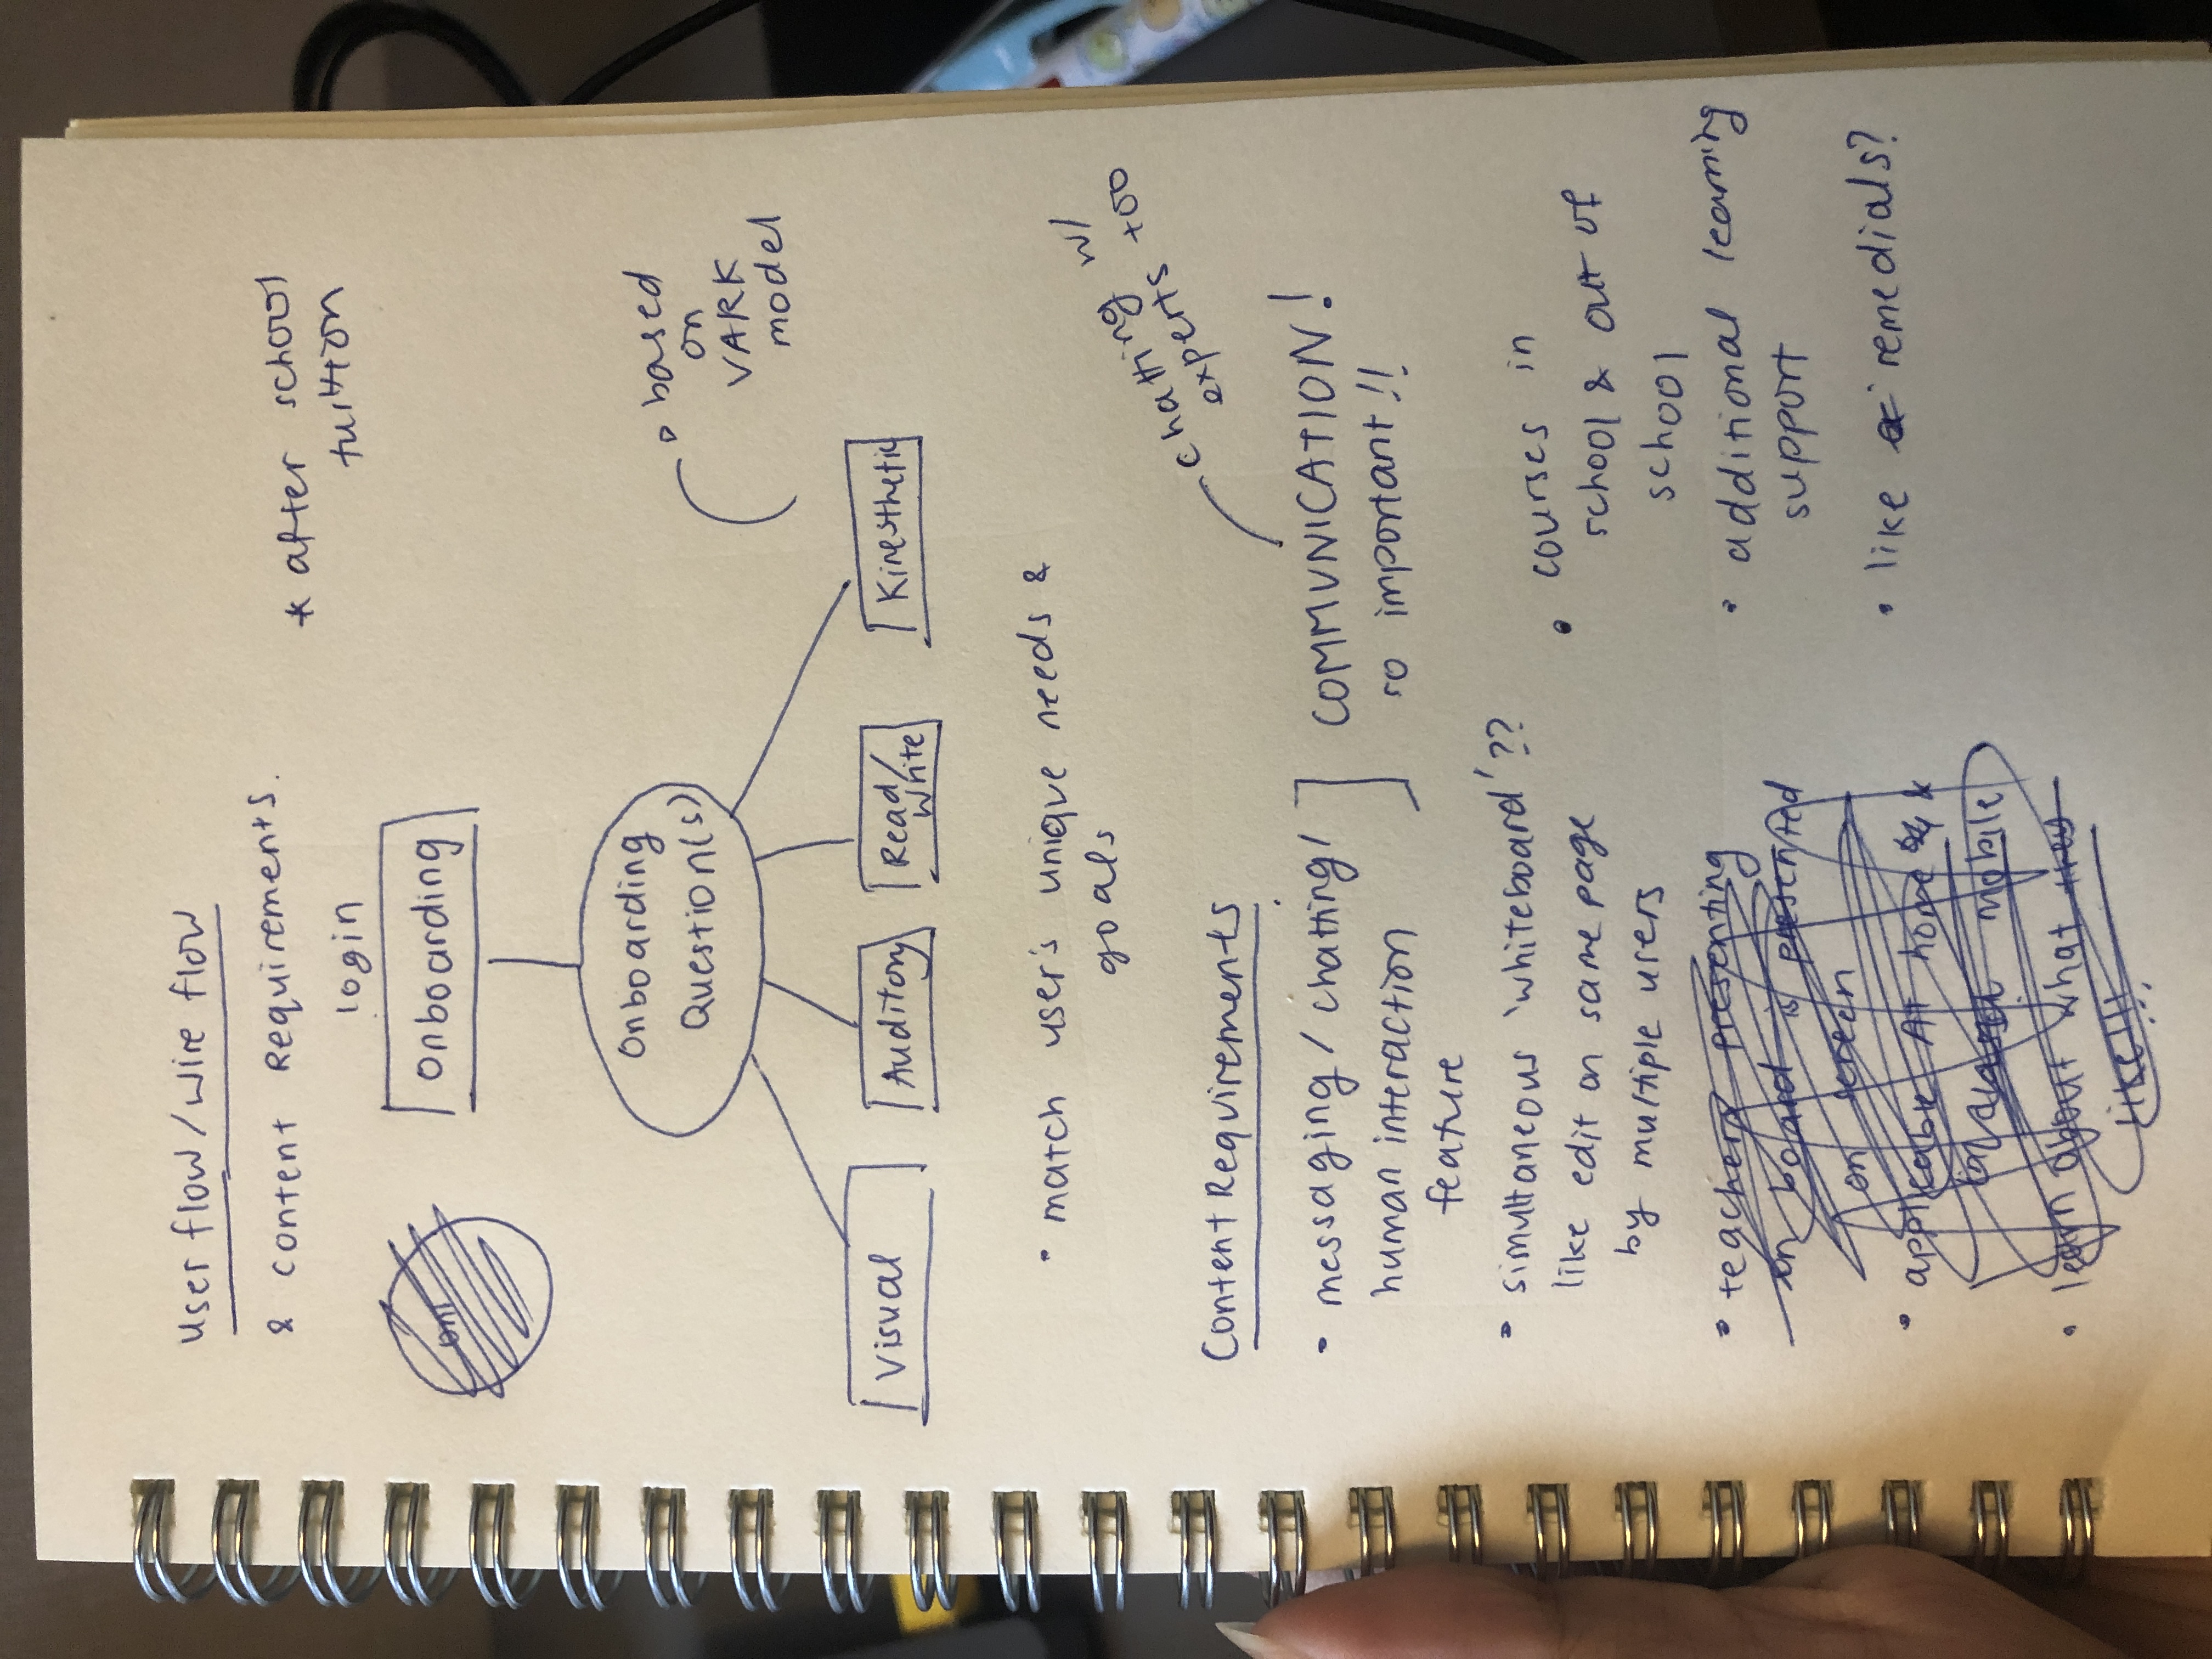 user flow / wire flow
& content Requirements.
* after school
tuition
login
Onboarding
Onboarding
Question(s)
• based
on
VARK
model
Visual
Auditory
Read/
Write
Kinesthetic
• match user's unique needs &
goals
Content Requirements
• messaging / chatting /
human interaction
feature
COMMUNICATION!
so important!!
chatting w/
experts too
• simultaneous 'whiteboard'??
like edit on same page
by multiple users
• teachers presenting
on board is presented
on screen
• applicable At home &
mobile
• learn about what they
like!!!
• courses in
school & out of
school
• additional learning
support
• like remedials?